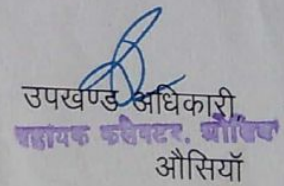 उपखण्ड अधिकारी
सहायक कलेक्टर, औसियां
औसियाॅ